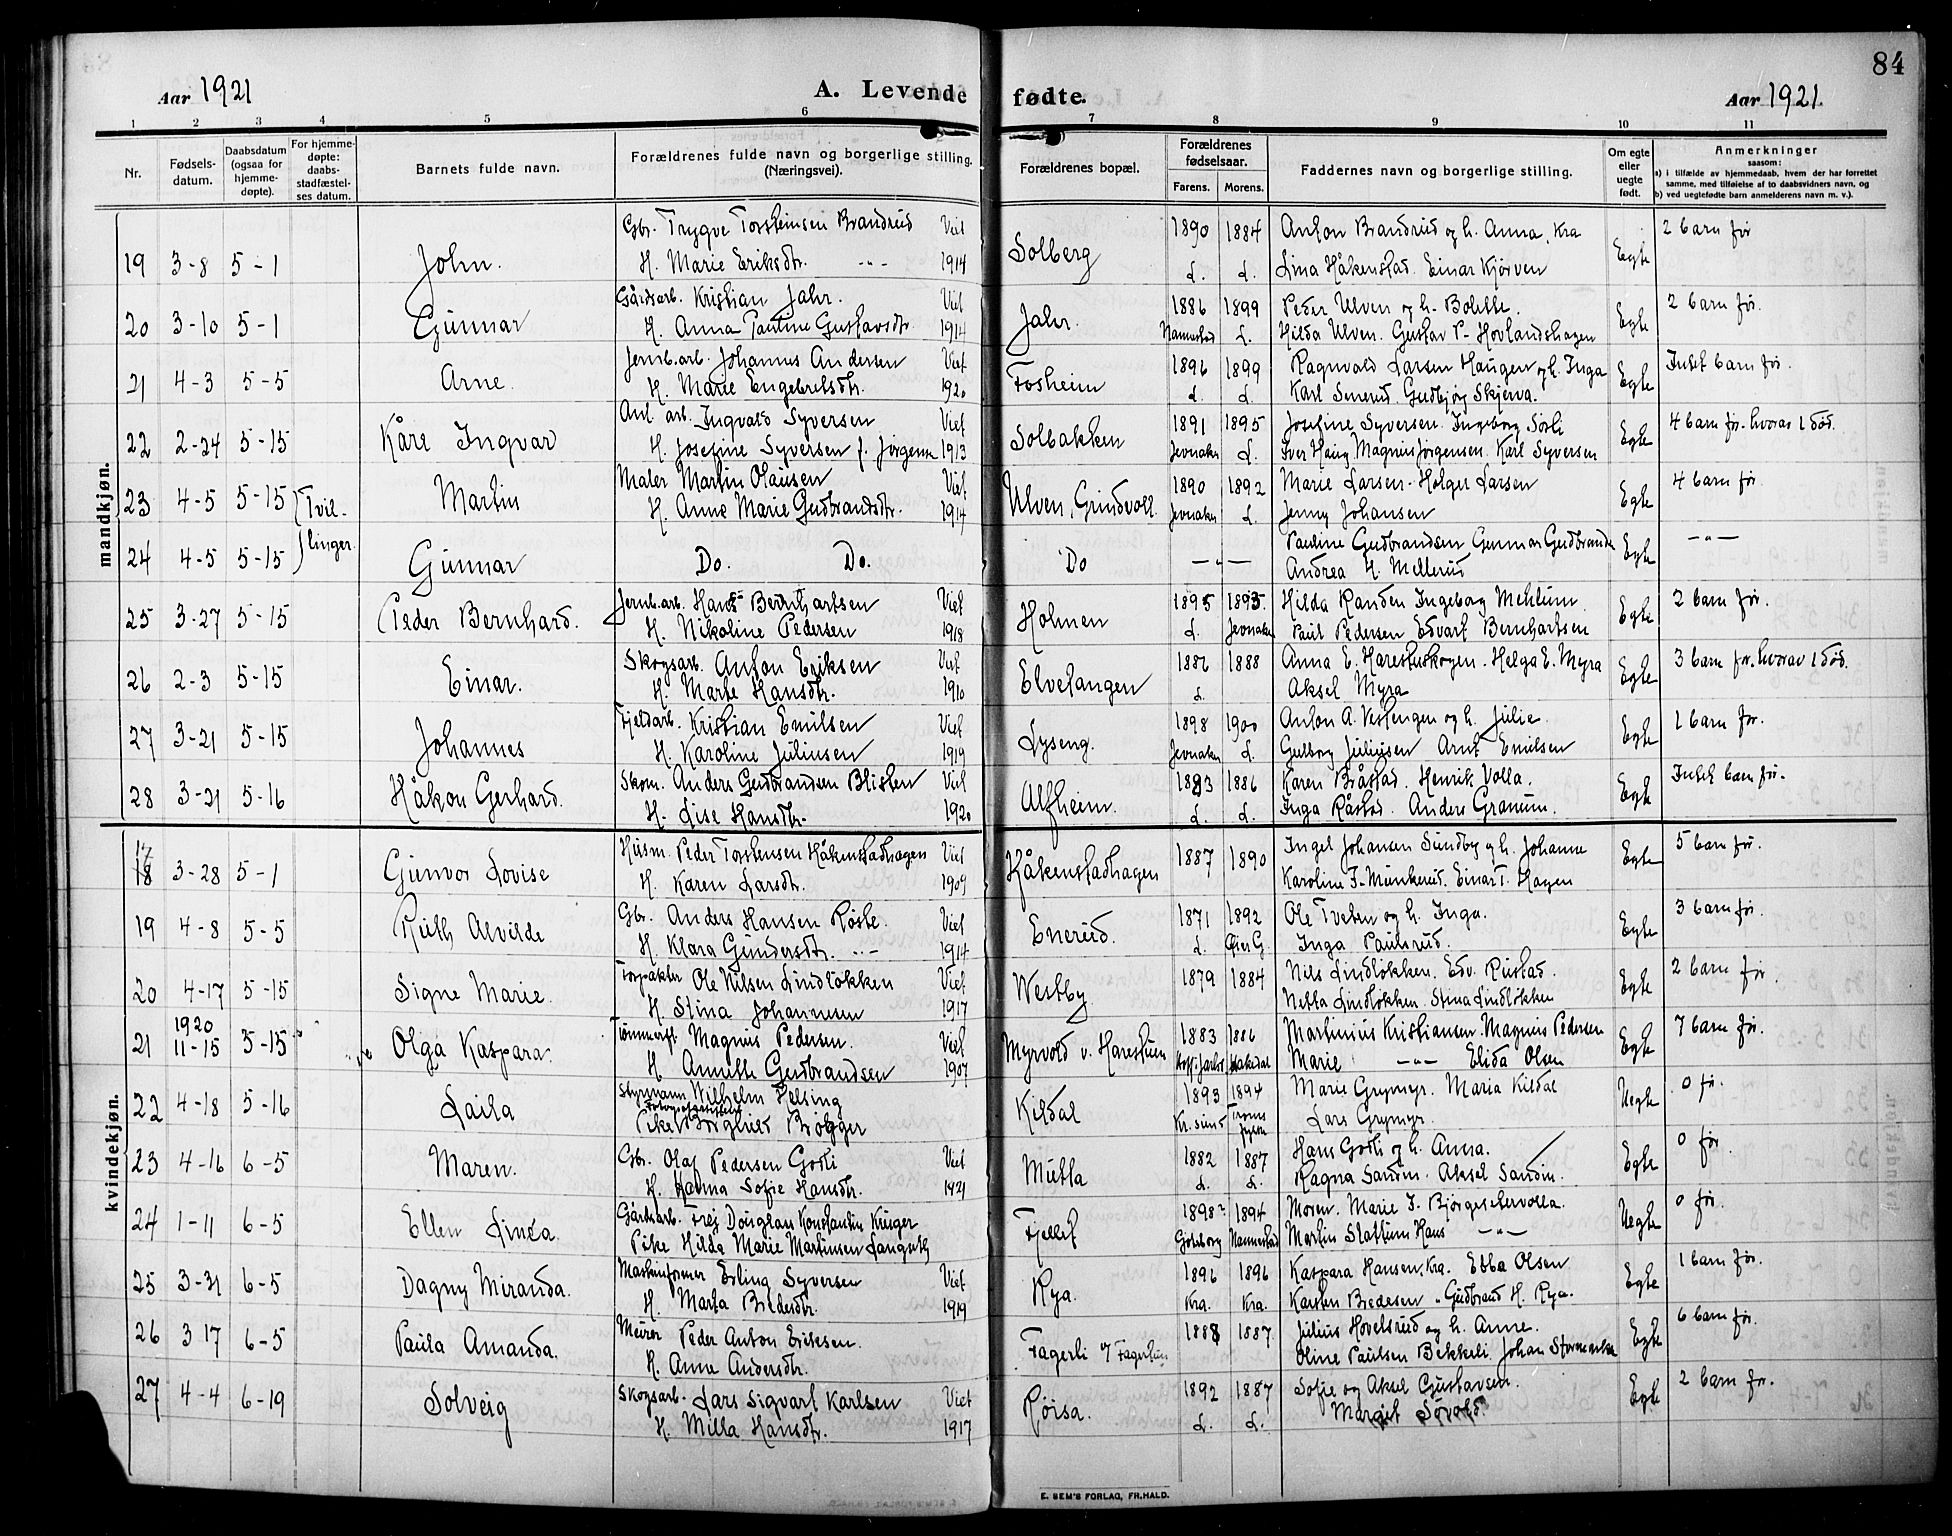 84
Aar 1921
A. Levende fødte.
Aar 1921.
1 2 3 4 5 6 7 8 9 10 11
Nr.
Fødsels-
datum.
Daabsdatum
(ogsaa for
hjemme-
døpte).
For hjemme-
døpte:
daabs-
stadfæstel-
ses datum.
Barnets fulde navn.
Forældrenes fulde navn og borgerlige stilling.
(Næringsvei).
Forældrenes bopæl.
Forældrenes
fødselsaar.
Farens. Morens.
Faddernes navn og borgerlige stilling.
Om egte
eller
uegte
født.
Anmerkninger
saasom:
a) i tilfælde av hjemmedaab, hvem der har forrettet
samme, med tilføielse af to daabsvidners navn, og
b) ved uegtefødte barn anmelderens navn m. v.).
mandkjøn.
Gbr. Trygve Torsteinsen Brandrud Viet 1890 1884 Anton Brandrud og h. Anna, Kra 2 barn før
19 3-8 5-1 John. H. Marie Eriksdtr. -"- 1914 Solberg L. L. Lina Håkenstad. Einar Kjørven Egte
Gårdsarb. Kristian Jahr. Viet 1886 1899 Peder Ulven og h. Bolette. 2 barn før.
20 3-10 5-1 Gunnar H. Anna Pauline Gustavsdtr. 1914 Jahr. Nannestad L. Hilda Ulven. Gustav P. Hovlandshagen Egte
Jernb.arb. Johannes Andersen Viet 1896 1899 Ragnvald Larsen Haugen og h. Inga Intet barn før.
21 4-3 5-5 Arne. H. Marie Engebretsdtr. 1920 Fosheim L. L. Karl Gudbjørg Skjerva. Egte
Anl. arb. Ingvald Syversen Viet 1891 1895 Josefine Syversen. Ingeborg Sørli 4 barn før. hvorav 1 død.
22 2-24 5-15 Kåre Ingvar H. Josefine Syversen f. Jørgensen 1913 Solbakken Jevnaker L. Iver Haug. Magnus Jørgensen. Karl Syversen Egte
Maler Martin Olausen Viet 1890 1892 Marie Larsen. Holger Larsen 4 barn før.
23 4-5 5-15 Tvil- Martin H. Anne Marie Gudbrandsdtr. 1914 Ulven, Grindvoll Jevnaker L. Jenny Johansen Egte
linger. Pauline Gudbrandsen Gunnar -"-
24 4-5 5-15 Gunnar Do. Do. Do -"- Andrea H. Mellerud Egte
Jernb.arb. Hans Bernhartsen Viet 1895 1895. Hilda Randen Ingeborg Mehlum 2 barn før.
25 3-27 5-15 Peder Bernhard. H. Nikoline Pedersen 1918 Holmen L. Jevnaker Paul Pedersen Edvart Bernhartsen Egte
Skogsarb. Anton Eriksen Viet 1886 1888 Anna E. Harestuskogen. Helga E. Myra 3 barn før. hvorav 1 død.
26 2-3 5-15 Einar. H. Marte Hansdtr. 1910 Elvetangen L. Aksel Myra Egte
Fjeldarb. Kristian Emilsen Viet 1898 1900 Anton A. Vestengen og h. Julie. 1 barn før.
27 3-21 5-15 Johannes H. Karoline Juliusen 1919 Lyseng. Jevnaker L. Gulborg Juliusen Arnt Emilsen Egte
Skom. Anders Gudbrandsen Blisten Viet 1883 1886 Karen Bråstad. Henrik Volla. Intet barn før.
28 3-31 5-16 Håkon Gerhard. H. Lise Hansdtr. 1920 Alfheim. L. L. Inga Råstad. Anders Granum. Egte
kvindekjøn.
17 Husm. Peder Torstensen Håkenstadhagen Viet 1887 1890 Ingel Johansen Sundby og h. Johanne 5 barn før.
18 3-28 5-1 Gunvor Lovise H. Karen Larsdtr. 1909 Håkenstadhagen Karoline F. Munkerud. Einar T. Hagen Egte
Gbr. Anders Hansen Røste. Viet 1871 1892 Ole Tveten og h. Inga. 3 barn før.
19 4-8 5-5 Ruth Alvilde H. Klara Gundersdtr. -"- 1914 Enerud. L. Øier G. Inga Paulsrud. Egte
Forpakter Ole Nilsen Lindløkken Viet 1879 1884 Nils Lindløkken. Edv. Rustad. 2 barn før.
20 4-17 5-15 Signe Marie. H. Stina Johannesen 1917 Westby. Netta Lindløkken. Stina Lindløkken Egte
1920 Tømmerfl. Magnus Pedersen. Viet 1883 1886 Martinius Kristiansen. Magnus Pedersen 7 barn før.
21 11-15 5-15 Olga Kaspara. H. Annette Gudbrandsen 1907 Myrvold v. Harestuen Hakedal Marie -"- Elida Olsen Egte
Styrmann Wilhelm Helsing 1893 1894 Marie Grymyr. Maria Kildal 0 før.
22 4-18 5-16 Laila Pike Borghild Brøgger Kildal Kr.sund Troms fylke Lars Grymyr. Uegte
Gbr. Olaf Pedersen Godli Viet 1882 1887 Hans Godli og h. Anna. 0 før.
23 4-16 6-5 Maren. H. Hanna Sofie Hansdtr. 1921 Mutta L. L. Ragna Sandin. Aksel Sandin. Egte
Gårdsarb. Frej Douglan Konstantin Kruger 1898? 1894 Moren. Marie J. Bjørgesetervolla. 0 før.
24 1-11 6-5 Ellen Linda. Pike Hilda Marie Martinsen Langseth Fjellet Göteborg Nannestad Martin Slattum Hans -"- Uegte
Maskinformer Erling Syversen Viet 1896 1896 Kaspara Hansen, Kra. Ebba Olsen 1 barn før.
25 3-31 6-5 Dagny Miranda. H. Marta Bredesdtr. 1919 Rya. Kra. Kra. Karsten Bredesen. Gudbrand H. Rya. Egte
Murer Peder Anton Eriksen. 1888 1887. Julius Hovelsrud og h. Anne. 6 barn før.
26 3 17 6-5 Paula Amanda. H. Anna Andersdtr. Fagerli Oline Paulsen Bekkeli. Johan Egte
Skogsarb. Lars Sigvart Karlsen Viet 1892 1887 Sofie og Aksel Gustavsen. 2 barn før.
27 4-4 6-19 Solveig H. Milla Hansdtr. 1917 Røisa. L. L. Margit Sørvold. Egte
E. SEM'S FORLAG, FR.HALD.